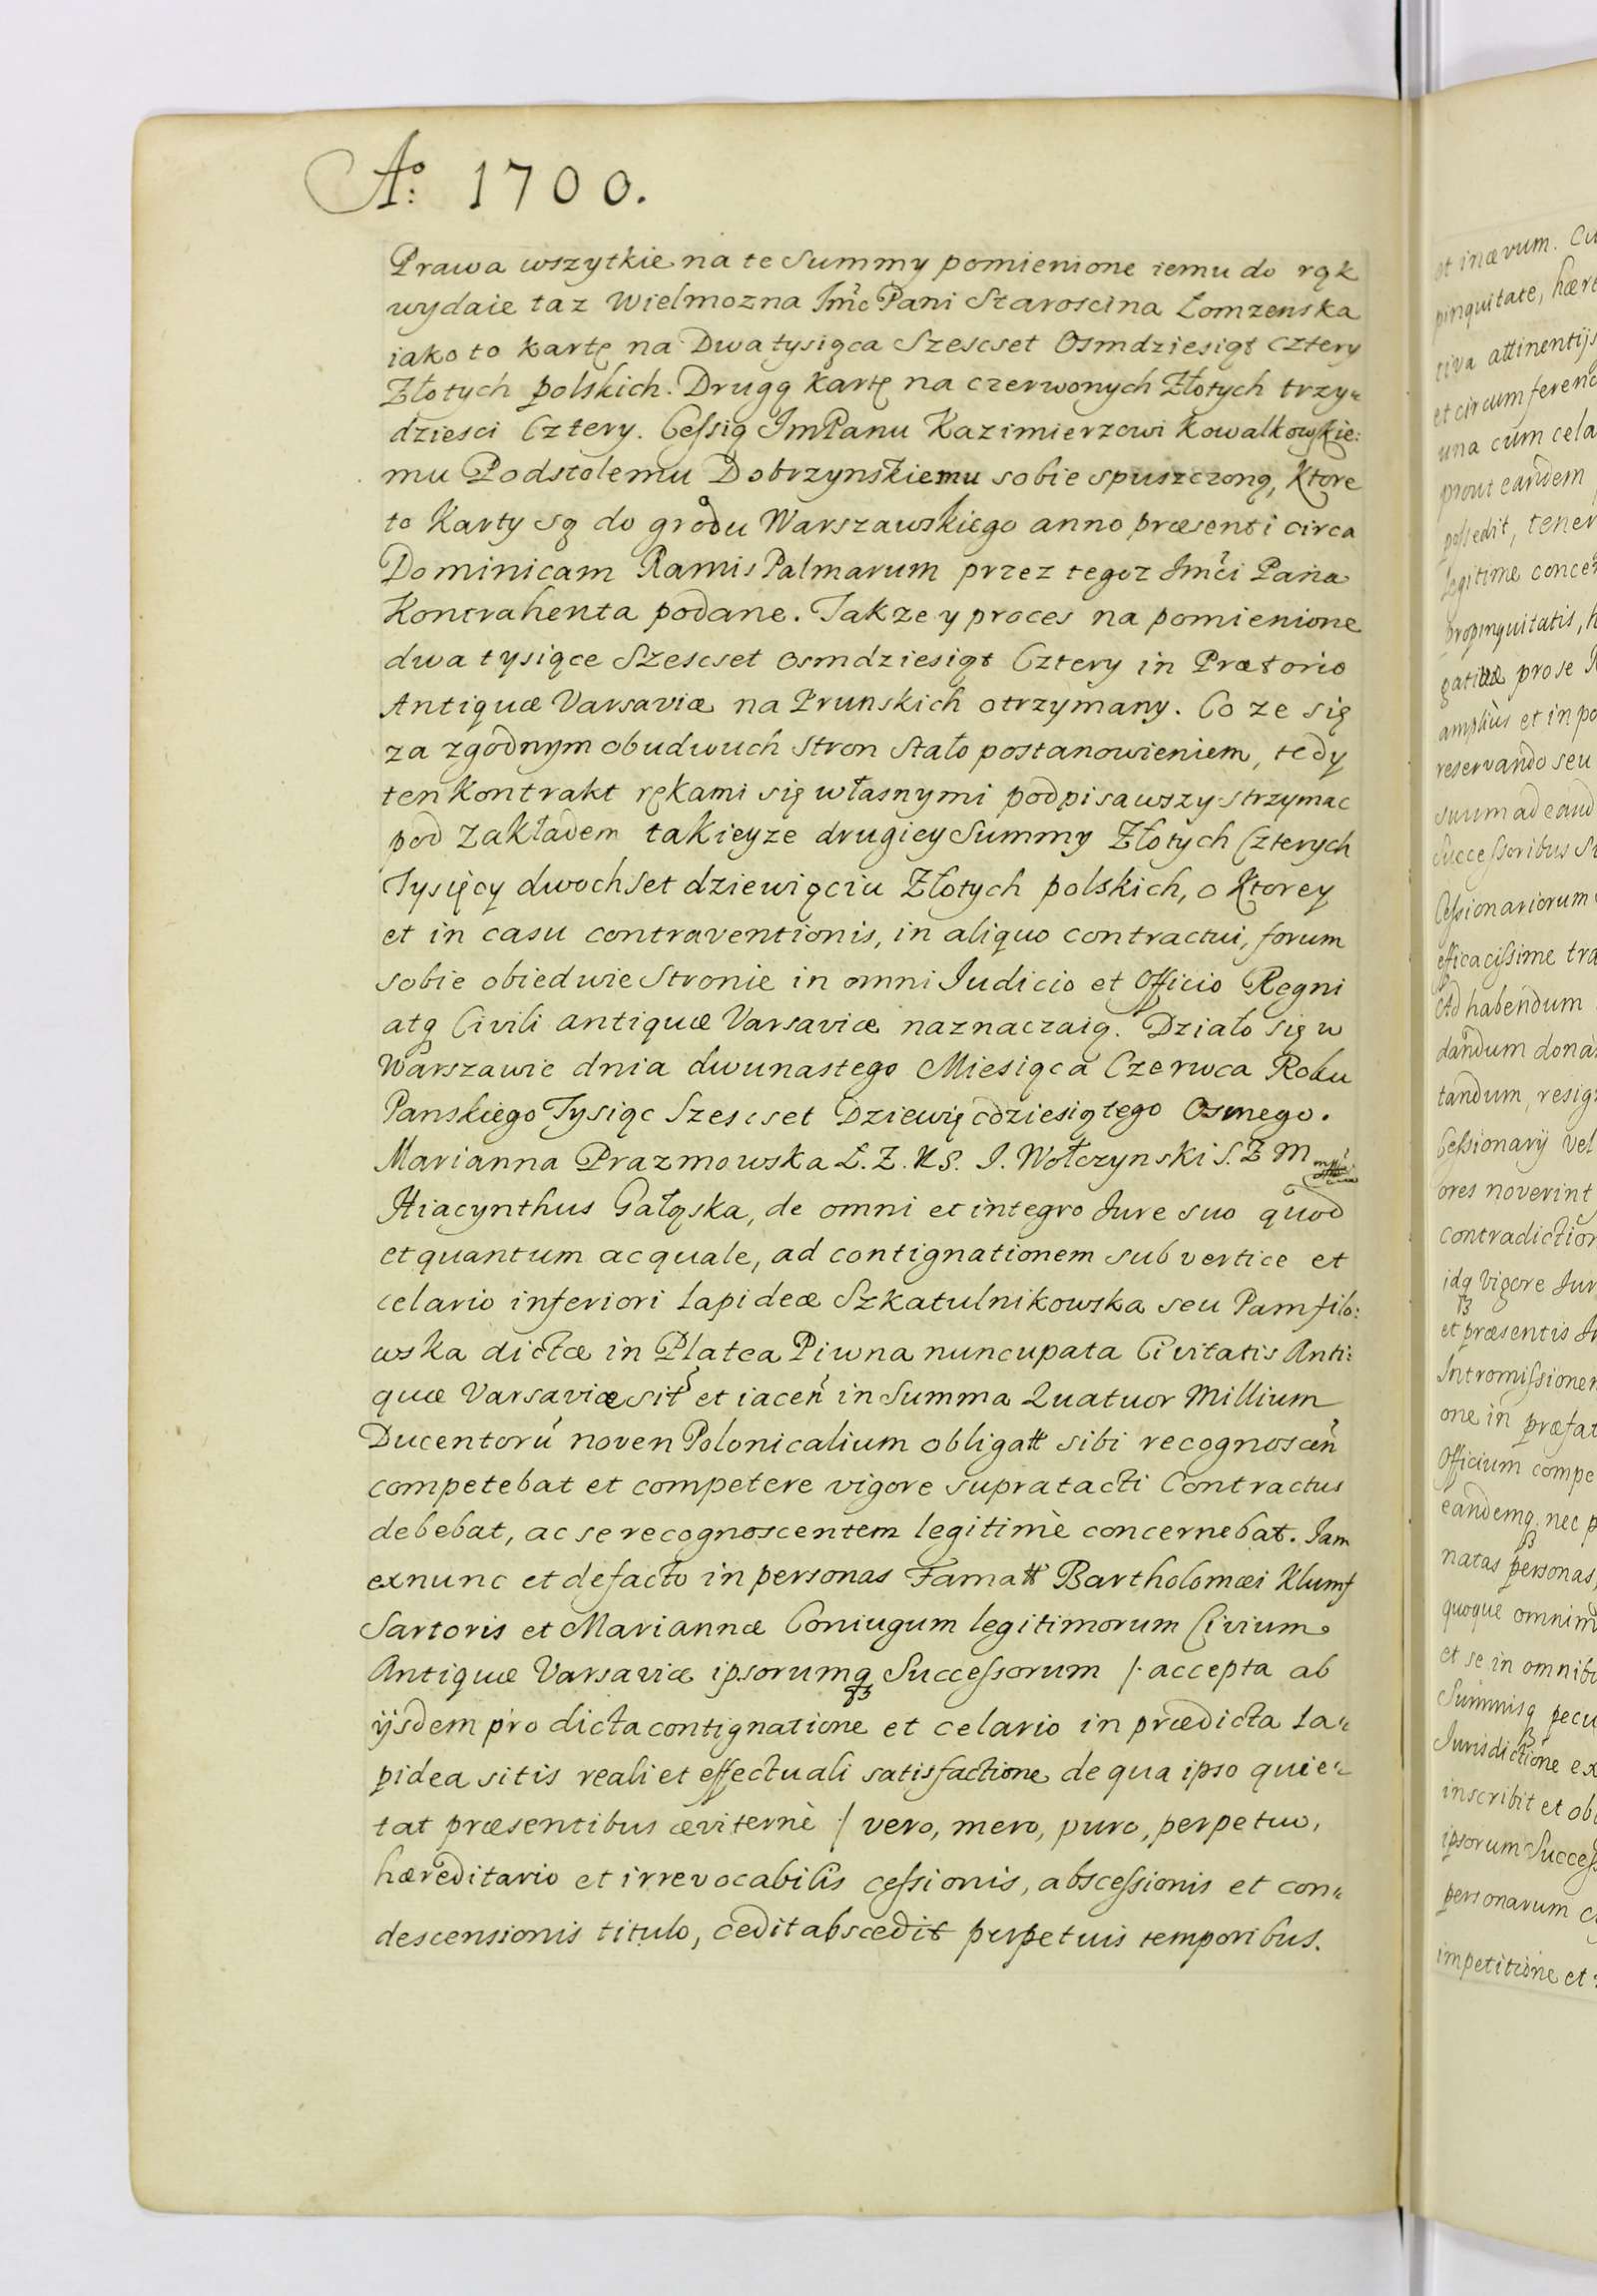 Aº: 1700.
Prawa wszytkie na te Summy pomienione iemu do rąk
wydaie taz Wielmozna Jmc Pani Staroscina Lomzenska
iako to kartę na Dwa tysiąca Szescset Osmdziesiąt cztery
Złotych polskich. Drugą kartę na czerwonych Złotych trzy„
dziesci Cztery. Ceſsią JmPanu Kazimierzowi Kowalkowskie:
mu Podstolemu Dobrzynskiemu sobie spuszczoną, Ktore
to Karty są do grodu Warszawskiego anno præsenti circa
Dominicam Ramis Palmarum przez tegoz Jmci Pana
Kontrahenta podane. Takze y proces na pomienione
dwa tysiące Szescset osmdziesiąt Cztery in Prætorio
Antiquæ Varsaviæ na Prunskich otrzymany. Co ze się
za zgodnym obudwuch stron Stało postanowieniem, tedy
ten Kontrakt rękami się własnymi podpisawszy strzymac
pod Zakładem takieyze drugiey Summy Złotych Czterych
Tysięcy dwochset dziewięciu Złotych polskich, o Ktorey
et in casu contraventionis, in aliquo contractui, forum
sobie obiedwie Stronie in omni Iudicio et Officio Regni
atq Civili antiquæ Varsaviæ naznaczaią. Działo się w
Warszawie dnia dwunastego Miesiąca Czerwca Roku
Panskiego Tysiąc Szescset Dziewięcdziesiątego Osmego.
Marianna Prazmowska Ł. Z. K S. J. Wołczynski S. Z M
Hiacynthus Gałęska, de omni et integro Iure suo quod
et quantum ac quale, ad contignationem sub vertice et
celario inferiori lapideæ Szkatulnikowska seu Pamfilo:
wska dictæ in Platea Piwna nuncupata Civitatis Anti:
quæ Varsaviæ sit et iacen in Summa Quatuor Millium
Ducentorú noven Polonicalium obligatt sibi recognoscen
competebat et competere vigore supratacti Contractus
debebat, ac se recognoscentem legitimè concernebat. Iam
exnunc et defacto in personas Famatt Bartholomæi Klumf
Sartoris et Mariannæ Coniugum legitimorum Civium
Antiquæ Varsaviæ ipsorumq Succeſsorum /: accepta ab
ijsdem pro dicta contignatione et celario in prædicta La„
pidea sitis reali et effectuali satisfactione de qua ipso quie„
tat præsentibus æviternè / vero, mero, puro, perpetuo,
hæreditario et irrevocabilis ceſsionis, absceſsionis et con„
descensionis titulo, cedit abscedit perpetuis temporibus.
et inævum.
pinquitate, hær
tiva attinentijs
et circumferenc
una cum cela
prout eandem
poſsedit, tener
legitime concer
propinquitatis, h
gativæ pro se
amplius et in po
reservando seu
suum ad eand
Succeſsoribus
Ceſsionariorum
efficaciſsime tra
Ad habendum
dandum dona
tandum, resig
Ceſsionarij vel
ores noverint
contradiction
idq vigore Iur
et præsentis
Intromiſsionem
one in præfat
Officium compe
eandemq. nec p
natas personas,
quoque omnim
et se in omnib
Summisq pecu
Iurisdictione ex
inscribit et ob
ipsorum Succeſs
personarum
impetitione et